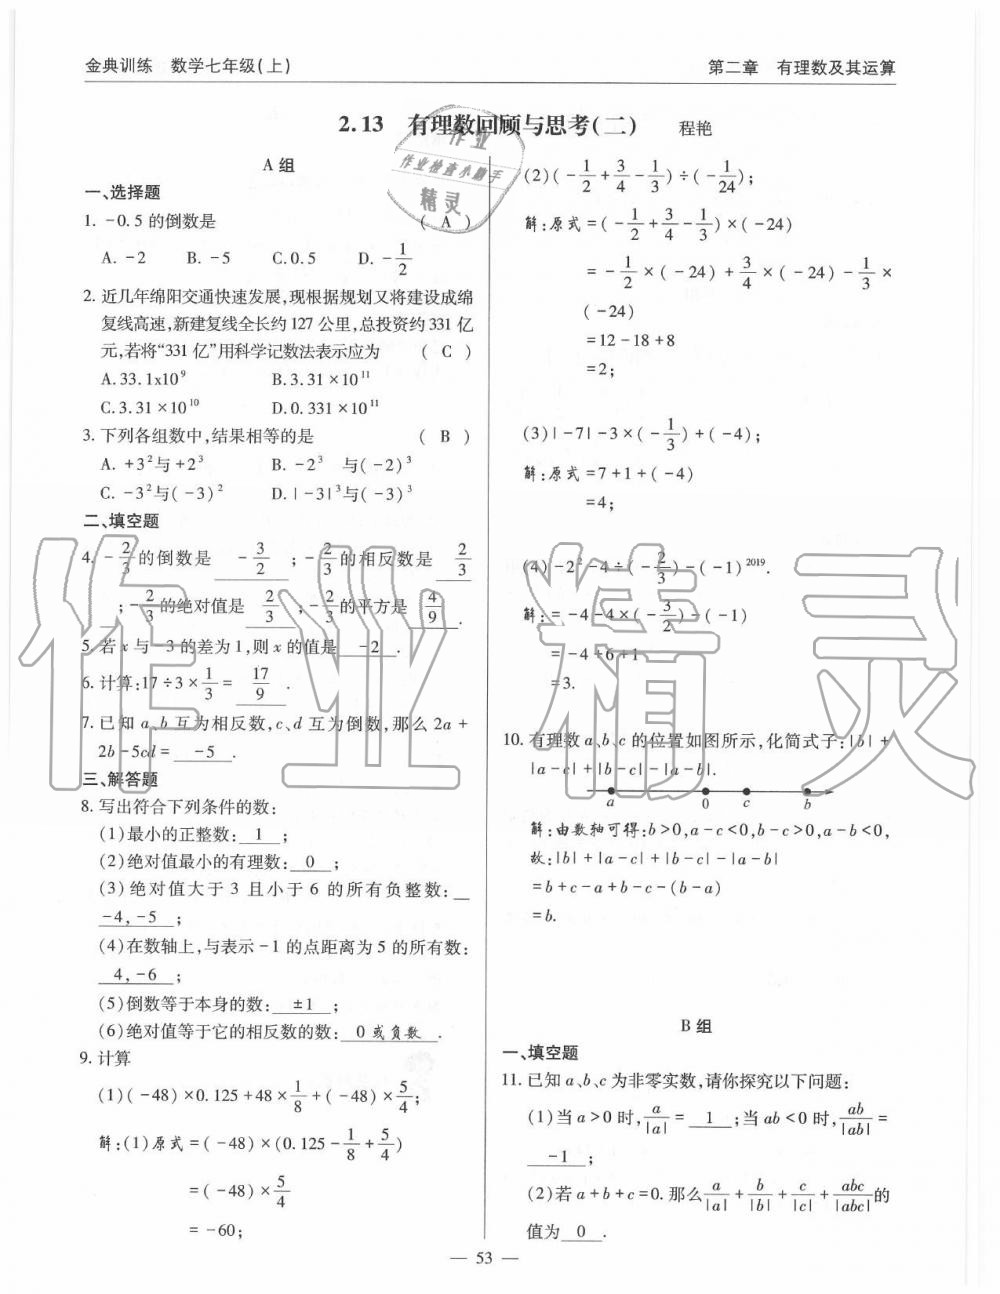 金典训练 数学七年级(上)
第二章 有理数及其运算
2.13 有理数回顾与思考(二) 程艳
A 组
一、选择题
1. -0.5 的倒数是 ( A )
A. -2 B. -5 C. 0.5 D. -1/2
2. 近几年绵阳交通快速发展,现根据规划又将建设成绵
复线高速,新建复线全长约 127 公里,总投资约 331 亿
元,若将“331 亿”用科学记数法表示应为 ( C )
A. 33.1x10⁹ B. 3.31×10¹¹
C. 3.31×10¹⁰ D. 0.331×10¹¹
3. 下列各组数中,结果相等的是 ( B )
A. +3²与+2³ B. -2³ 与(-2)³
C. -3²与(-3)² D. |-3|³与(-3)³
二、填空题
4. -2/3的倒数是 -3/2 ;-2/3的相反数是 2/3
;-2/3的绝对值是 2/3 ;-2/3的平方是 4/9 .
5. 若 x 与 -3 的差为 1,则 x 的值是 -2 .
6. 计算:17÷3×1/3= 17/9 .
7. 已知 a、b 互为相反数,c、d 互为倒数,那么 2a+
2b-5cd= -5 .
三、解答题
8. 写出符合下列条件的数:
(1)最小的正整数: 1 ;
(2)绝对值最小的有理数: 0 ;
(3)绝对值大于 3 且小于 6 的所有负整数:
-4,-5 ;
(4)在数轴上,与表示 -1 的点距离为 5 的所有数:
4,-6 ;
(5)倒数等于本身的数: ±1 ;
(6)绝对值等于它的相反数的数: 0 或负数 .
9. 计算
(1)(-48)×0.125+48×1/8+(-48)×5/4;
解:(1)原式=(-48)×(0.125-1/8+5/4)
=(-48)×5/4
=-60;
(2)(-1/2+3/4-1/3)÷(-1/24);
解:原式=(-1/2+3/4-1/3)×(-24)
=-1/2×(-24)+3/4×(-24)-1/3×
(-24)
=12-18+8
=2;
(3)|-7|-3×(-1/3)+(-4);
解:原式=7+1+(-4)
=4;
(4)-2²-4÷(-2/3)-(-1)²⁰¹⁹.
解:=-4-4×(-3/2)-(-1)
=-4+6+1
=3.
10. 有理数 a、b、c 的位置如图所示,化简式子:|b|+
|a-c|+|b-c|-|a-b|.
a 0 c b
解:由数轴可得:b>0,a-c<0,b-c>0,a-b<0,
故:|b|+|a-c|+|b-c|-|a-b|
=b+c-a+b-c-(b-a)
=b.
B 组
一、填空题
11. 已知 a、b、c 为非零实数,请你探究以下问题:
(1)当 a>0 时,a/|a|= 1 ;当 ab<0 时,ab/|ab|=
-1 ;
(2)若 a+b+c=0.那么a/|a|+b/|b|+c/|c|+abc/|abc|的
值为 0 .
— 53 —
作业
作业检查小助手
精灵
作业精灵